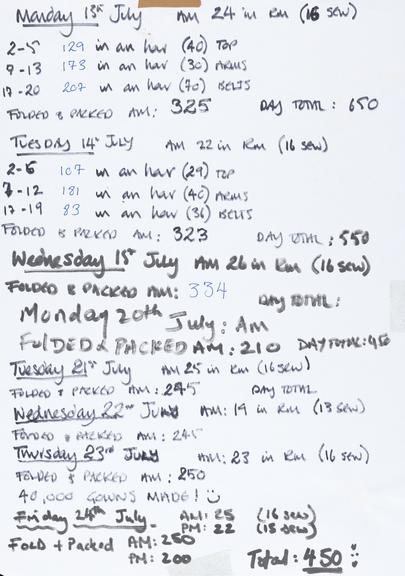 Monday 13th July AM 24 in Rm (16 sew)
2-5 129 in an har (40) TOP
9-13 173 in an har (30) ARMS
17-20 207 in an har (70) BELTS
FOLDED & PACKED AM: 325 DAY TOTAL: 650
TUESDAY 14th JULY AM 22 in Rm (16 sew)
2-6 107 in an har (29) TOP
7-12 181 in an har (40) ARMS
17-19 83 in an har (36) BELTS
FOLDED & PACKED AM: 323 DAY TOTAL: 550
Wednesday 15th July AM 26 in Rm (16 sew)
FOLDED & PACKED AM: 334 DAY TOTAL:
Monday 20th July: Am
FOLDED & PACKED AM: 210 DAY TOTAL: 450
Tuesday 21st July AM 25 in Rm (16 sew)
FOLDED & PACKED AM: 245 DAY TOTAL
Wednesday 22nd July AM: 19 in Rm (13 sew)
FOLDED & PACKED AM: 245
Thursday 23rd July AM: 23 in Rm (16 sew)
FOLDED & PACKED AM: 250
40,000 GOWNS MADE!
Friday 24th July AM: 25 (16 sew)
PM: 22 (15 sew)
Fold + Packed AM: 250
PM: 200 Total: 450